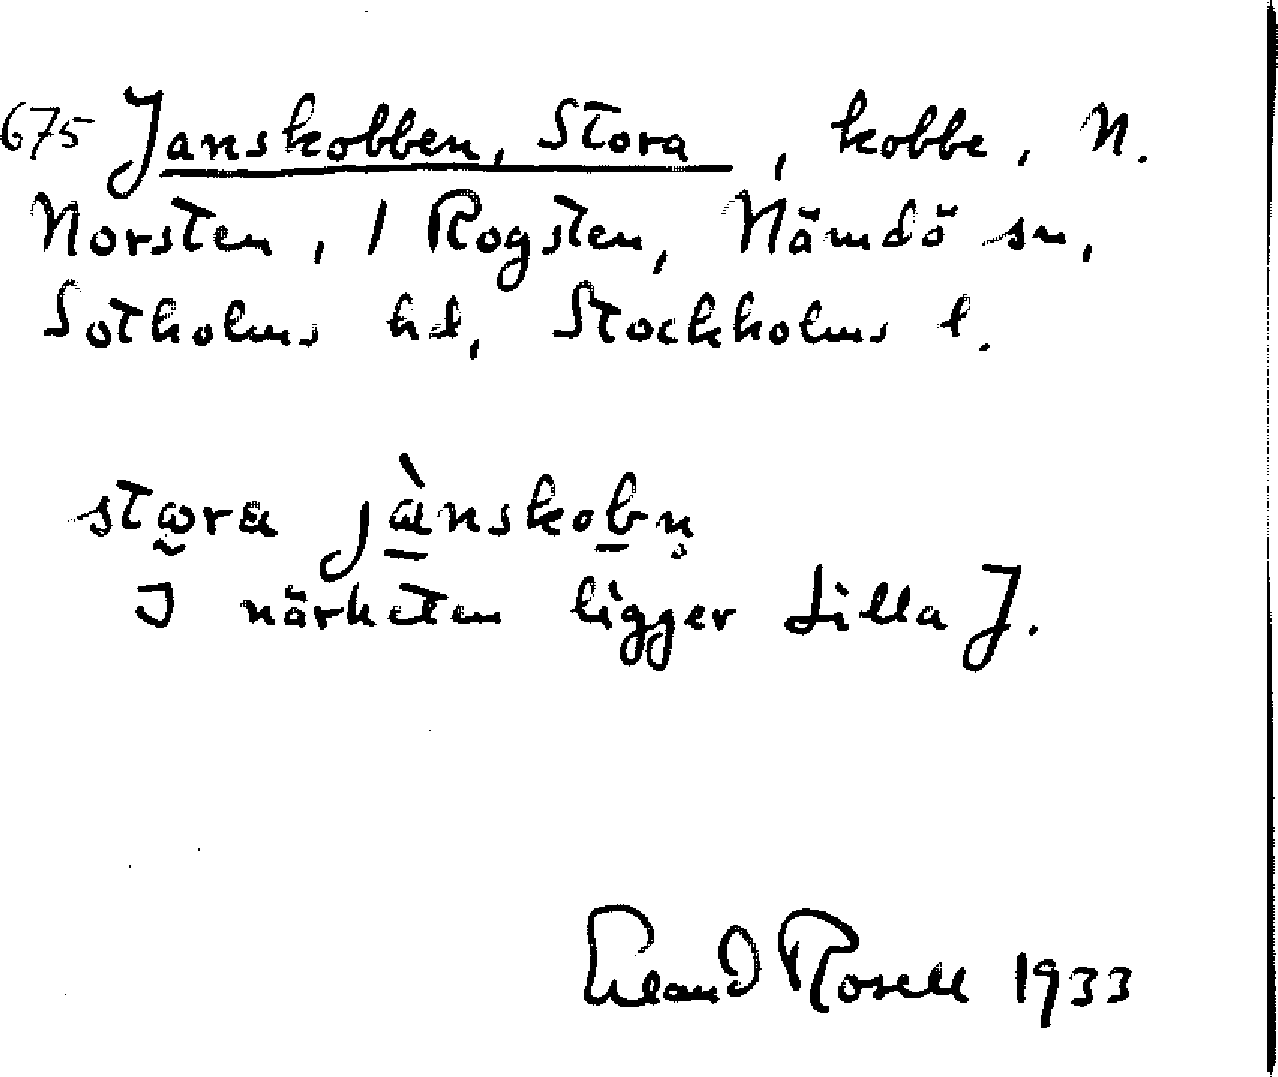 675 Janskobben, Stora, kobbe, N.
Norsten, 1 Rogsten, Nämdö sn,
Sotholms hd, Stockholms l.
stωra jànskobn̥
I närheten ligger Lilla J.
Erland Rosell 1933